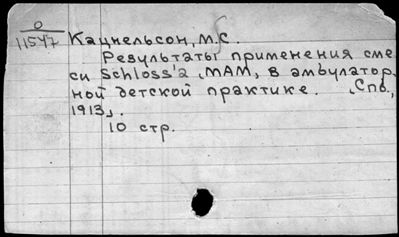 0
11547
Кацнельсон, М.С.
Результаты применения сме
си Schloss'a "МАМ" в амбулатор
ной детской практике. [Спб.,
1913].
10 стр.